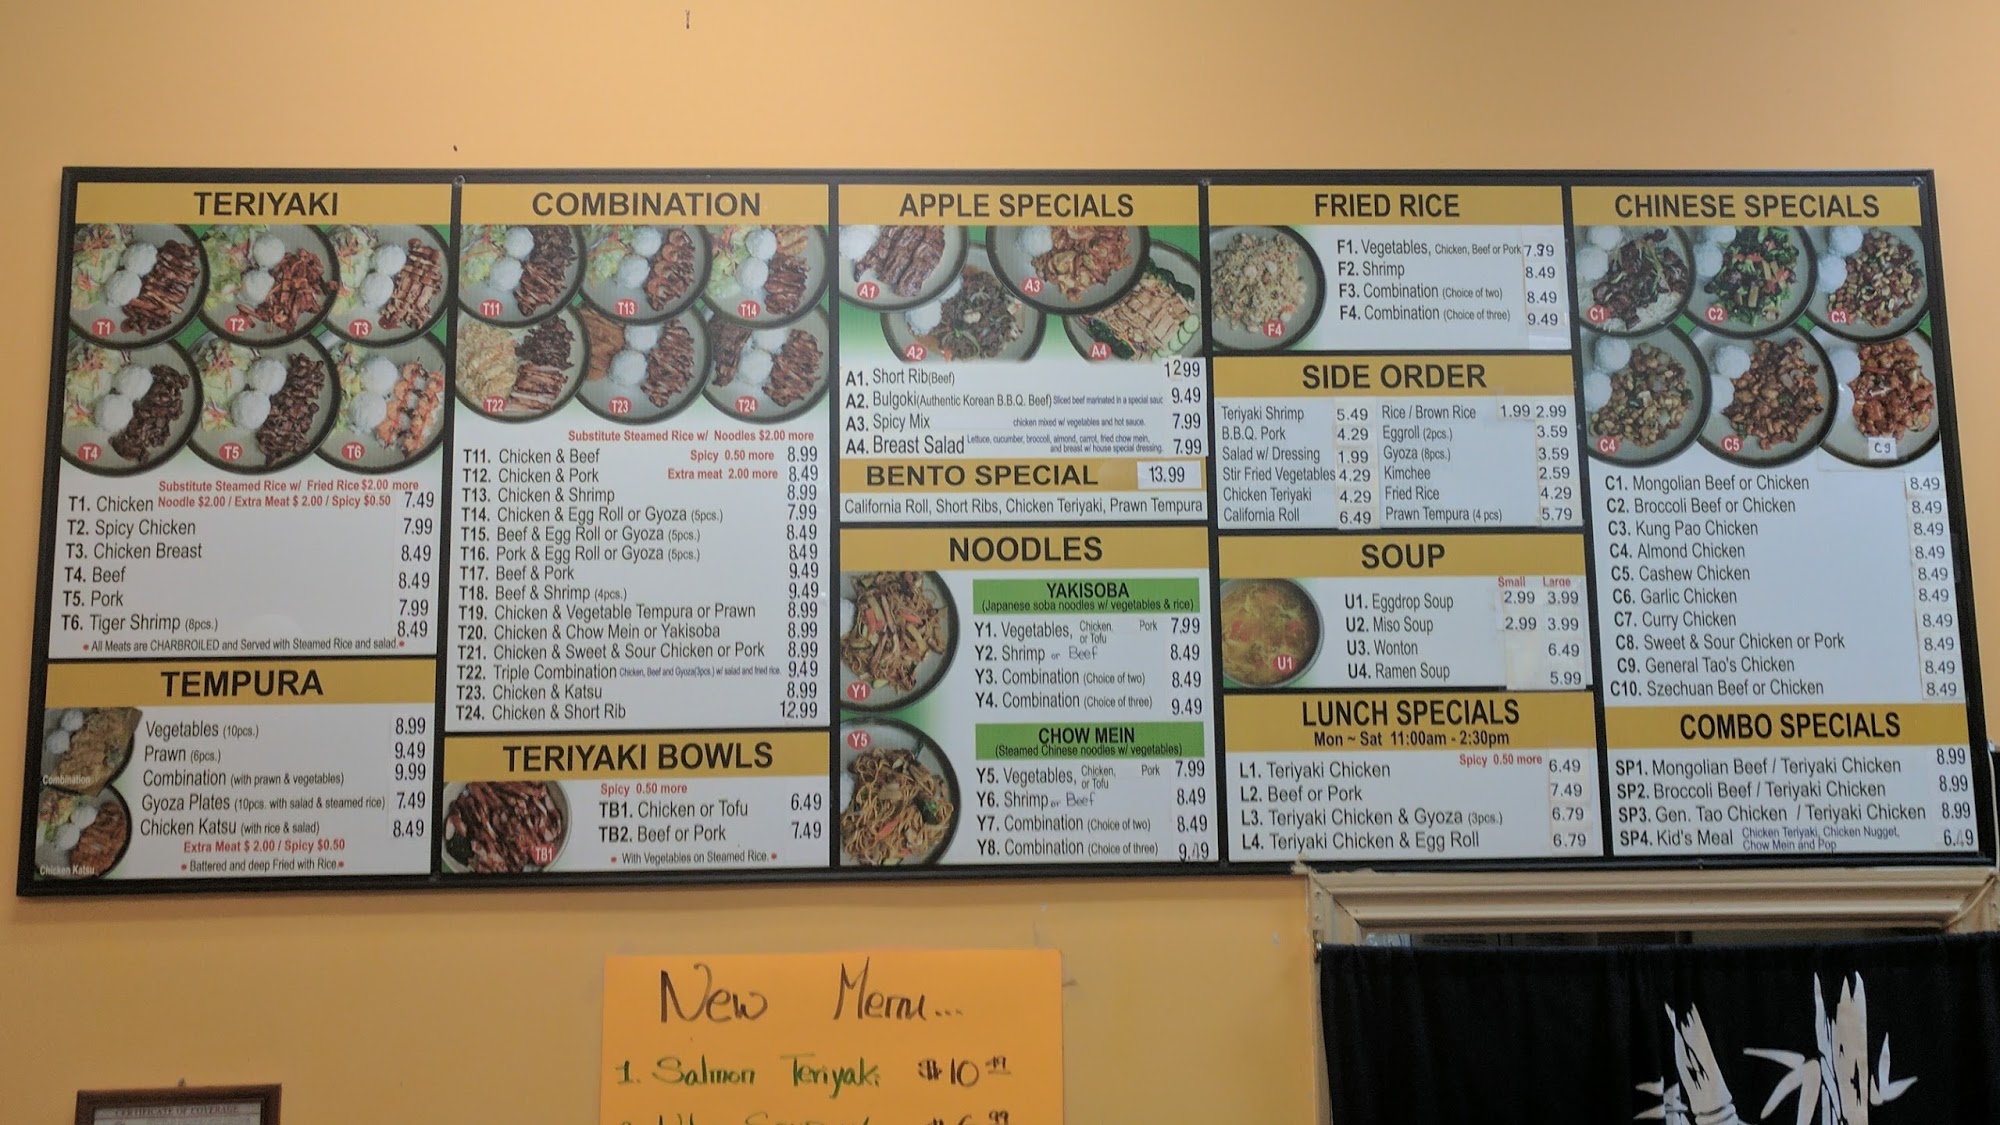 TERIYAKI
T1
T2
T3
T4
T5
T6
Substitute Steamed Rice w/ Fried Rice $2.00 more
Noodle $2.00 / Extra Meat $ 2.00 / Spicy $0.50
T1. Chicken 7.49
T2. Spicy Chicken 7.99
T3. Chicken Breast 8.49
T4. Beef 8.49
T5. Pork 7.99
T6. Tiger Shrimp (8pcs.) 8.49
* All Meats are CHARBROILED and Served with Steamed Rice and salad. *
TEMPURA
Combination
Chicken Katsu
Vegetables (10pcs.) 8.99
Prawn (6pcs.) 9.49
Combination (with prawn & vegetables) 9.99
Gyoza Plates (10pcs. with salad & steamed rice) 7.49
Chicken Katsu (with rice & salad) 8.49
Extra Meat $ 2.00 / Spicy $0.50
* Battered and deep Fried with Rice. *
COMBINATION
T11
T13
T14
T22
T23
T24
Substitute Steamed Rice w/ Noodles $2.00 more
Spicy 0.50 more
Extra meat 2.00 more
T11. Chicken & Beef 8.99
T12. Chicken & Pork 8.49
T13. Chicken & Shrimp 8.99
T14. Chicken & Egg Roll or Gyoza (5pcs.) 7.99
T15. Beef & Egg Roll or Gyoza (5pcs.) 8.49
T16. Pork & Egg Roll or Gyoza (5pcs.) 8.49
T17. Beef & Pork 9.49
T18. Beef & Shrimp (4pcs.) 9.49
T19. Chicken & Vegetable Tempura or Prawn 8.99
T20. Chicken & Chow Mein or Yakisoba 8.99
T21. Chicken & Sweet & Sour Chicken or Pork 8.99
T22. Triple Combination Chicken, Beef and Gyoza(3pcs.) w/ salad and fried rice. 9.49
T23. Chicken & Katsu 8.99
T24. Chicken & Short Rib 12.99
TERIYAKI BOWLS
TB1
Spicy 0.50 more
TB1. Chicken or Tofu 6.49
TB2. Beef or Pork 7.49
* With Vegetables on Steamed Rice. *
APPLE SPECIALS
A1
A2
A3
A4
A1. Short Rib(Beef) 12.99
A2. Bulgoki(Authentic Korean B.B.Q. Beef) Sliced beef marinated in a special sauc 9.49
A3. Spicy Mix chicken mixed w/ vegetables and hot sauce. 7.99
A4. Breast Salad Lettuce, cucumber, broccoli, almond, carrot, fried chow mein, and breast w/ house special dressing. 7.99
BENTO SPECIAL 13.99
California Roll, Short Ribs, Chicken Teriyaki, Prawn Tempura
NOODLES
Y1
YAKISOBA
(Japanese soba noodles w/ vegetables & rice)
Y1. Vegetables, Chicken, or Tofu Pork 7.99
Y2. Shrimp or Beef 8.49
Y3. Combination (Choice of two) 8.49
Y4. Combination (Choice of three) 9.49
Y5
CHOW MEIN
(Steamed Chinese noodles w/ vegetables)
Y5. Vegetables, Chicken, or Tofu Pork 7.99
Y6. Shrimp or Beef 8.49
Y7. Combination (Choice of two) 8.49
Y8. Combination (Choice of three) 9.49
FRIED RICE
F4
F1. Vegetables, Chicken, Beef or Pork 7.99
F2. Shrimp 8.49
F3. Combination (Choice of two) 8.49
F4. Combination (Choice of three) 9.49
SIDE ORDER
Teriyaki Shrimp 5.49
B.B.Q. Pork 4.29
Salad w/ Dressing 1.99
Stir Fried Vegetables 4.29
Chicken Teriyaki 4.29
California Roll 6.49
Rice / Brown Rice 1.99 2.99
Eggroll (2pcs.) 3.59
Gyoza (8pcs.) 3.59
Kimchee 2.59
Fried Rice 4.29
Prawn Tempura (4 pcs) 5.79
SOUP
U1
Small Large
U1. Eggdrop Soup 2.99 3.99
U2. Miso Soup 2.99 3.99
U3. Wonton 6.49
U4. Ramen Soup 5.99
LUNCH SPECIALS
Mon ~ Sat 11:00am - 2:30pm
Spicy 0.50 more
L1. Teriyaki Chicken 6.49
L2. Beef or Pork 7.49
L3. Teriyaki Chicken & Gyoza (3pcs.) 6.79
L4. Teriyaki Chicken & Egg Roll 6.79
CHINESE SPECIALS
C1
C2
C3
C4
C5
C9
C1. Mongolian Beef or Chicken 8.49
C2. Broccoli Beef or Chicken 8.49
C3. Kung Pao Chicken 8.49
C4. Almond Chicken 8.49
C5. Cashew Chicken 8.49
C6. Garlic Chicken 8.49
C7. Curry Chicken 8.49
C8. Sweet & Sour Chicken or Pork 8.49
C9. General Tao's Chicken 8.49
C10. Szechuan Beef or Chicken 8.49
COMBO SPECIALS
SP1. Mongolian Beef / Teriyaki Chicken 8.99
SP2. Broccoli Beef / Teriyaki Chicken 8.99
SP3. Gen. Tao Chicken / Teriyaki Chicken 8.99
SP4. Kid's Meal Chicken Teriyaki, Chicken Nugget, Chow Mein and Pop 6.49
New Menu...
1. Salmon Teriyaki $10.49
CERTIFICATE OF COVERAGE